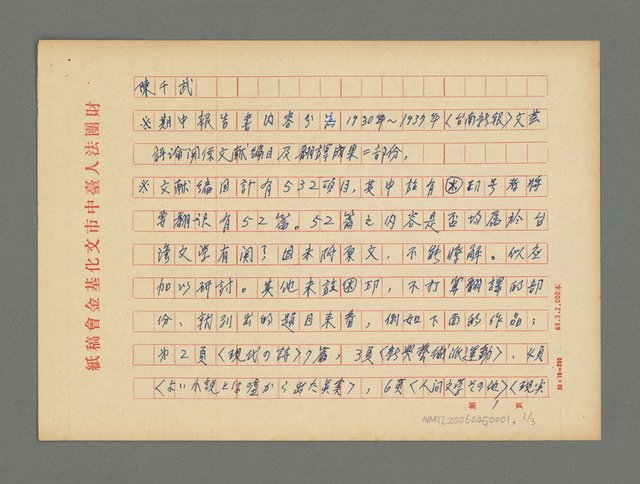 陳千武
※期中報告書内容分告 1930年～1937年〈台南新報〉文芸
評論関係文献編目及翻譯成果二部份。
※文献編目計有532項目，其中設有 印号者將
要翻訳有52篇。52篇之内容是否均屬於台
湾文学有関？因未附原文，不能瞭解。似应
加以研討。其他未設 印，不打算翻譯的部
份、就列出的題目来看，例如下面的作品：
第2頁〈現代の詩〉9篇，3頁〈新興藝術派運動〉、4頁
〈よい小説と 嘘から出た真実〉，6頁〈人间文学その他〉〈現実
財團法人臺中市文化基金會稿紙
68.3.2,000本
20×10=200
第1頁
NMTL20060450001, 1/3